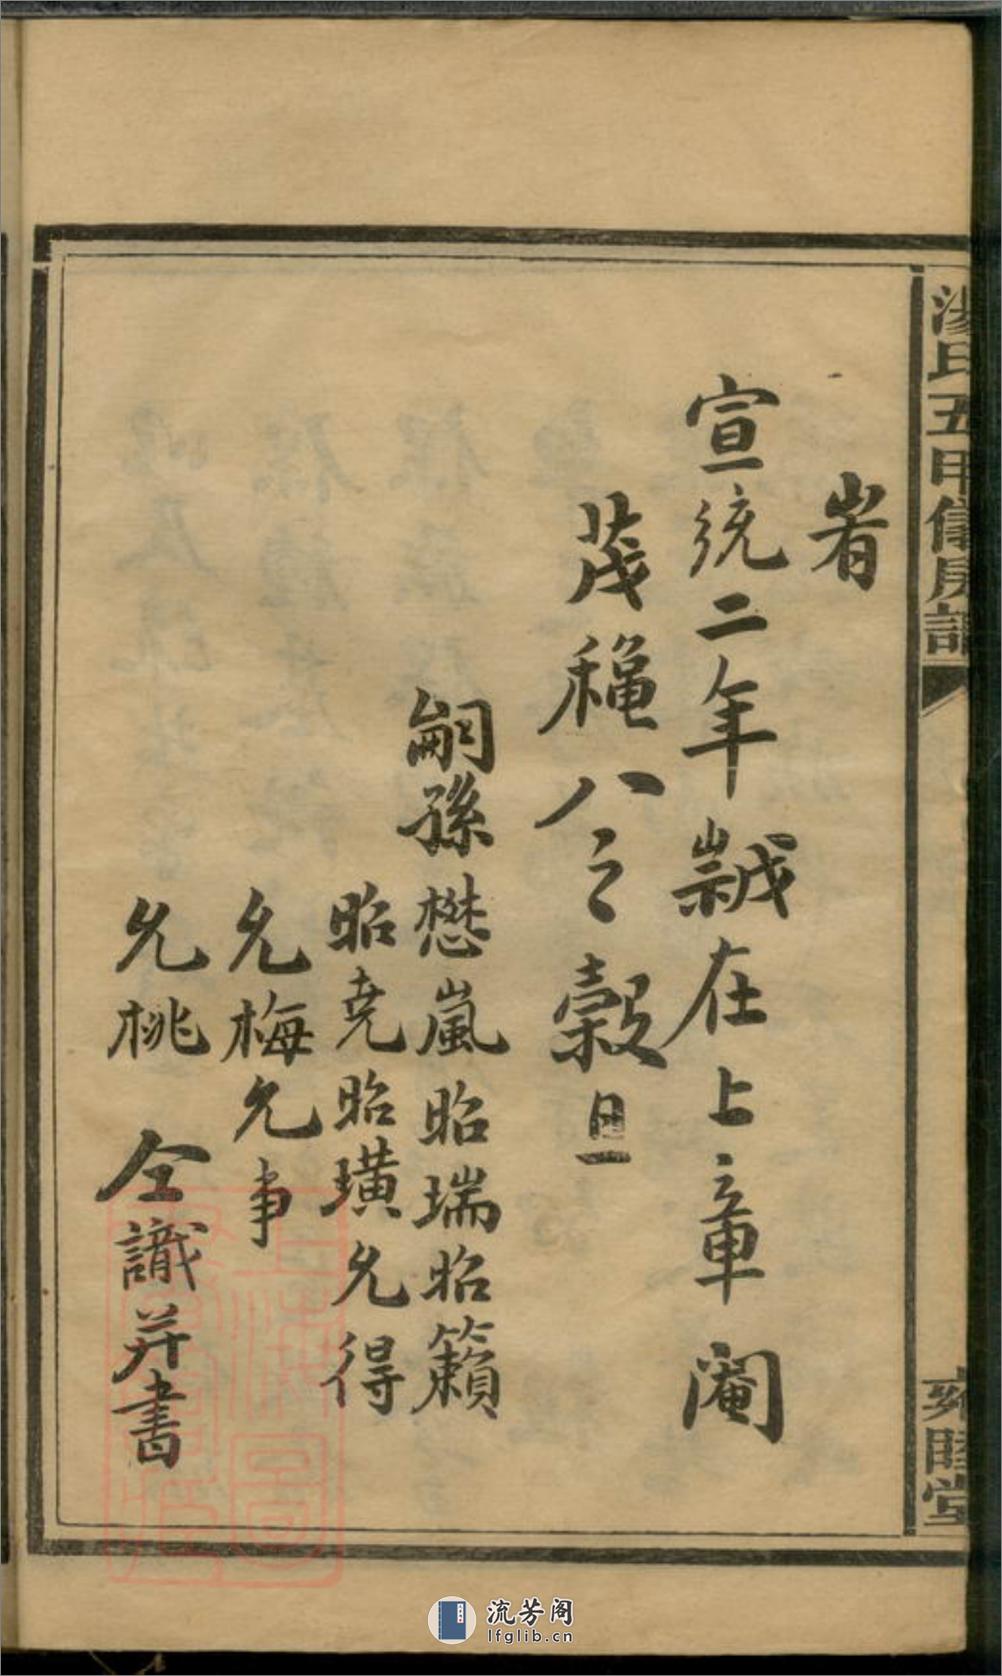 湯氏五甲儀房譜
雍睦堂
岩
宣統二年歲在上章閹
茂穐八之穀旦
嗣孫懋嵐昭瑞昭籟
昭堯昭璜允得
允梅允事
允桃 仝識并書
流芳阁
lfglib.cn